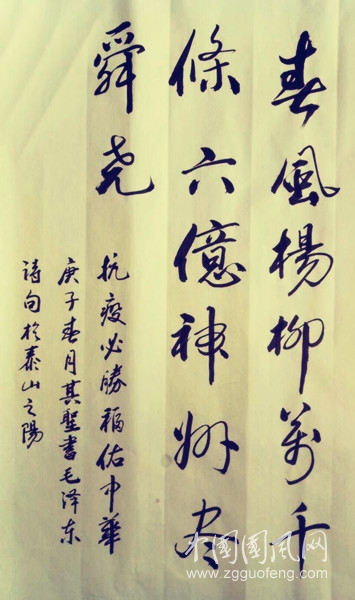 春風楊柳萬千
條六億神州盡
舜堯
抗疫必勝福佑中華
庚子春月其聖书毛泽东
诗句於泰山之陽
中国国风网
www.zgguofeng.com